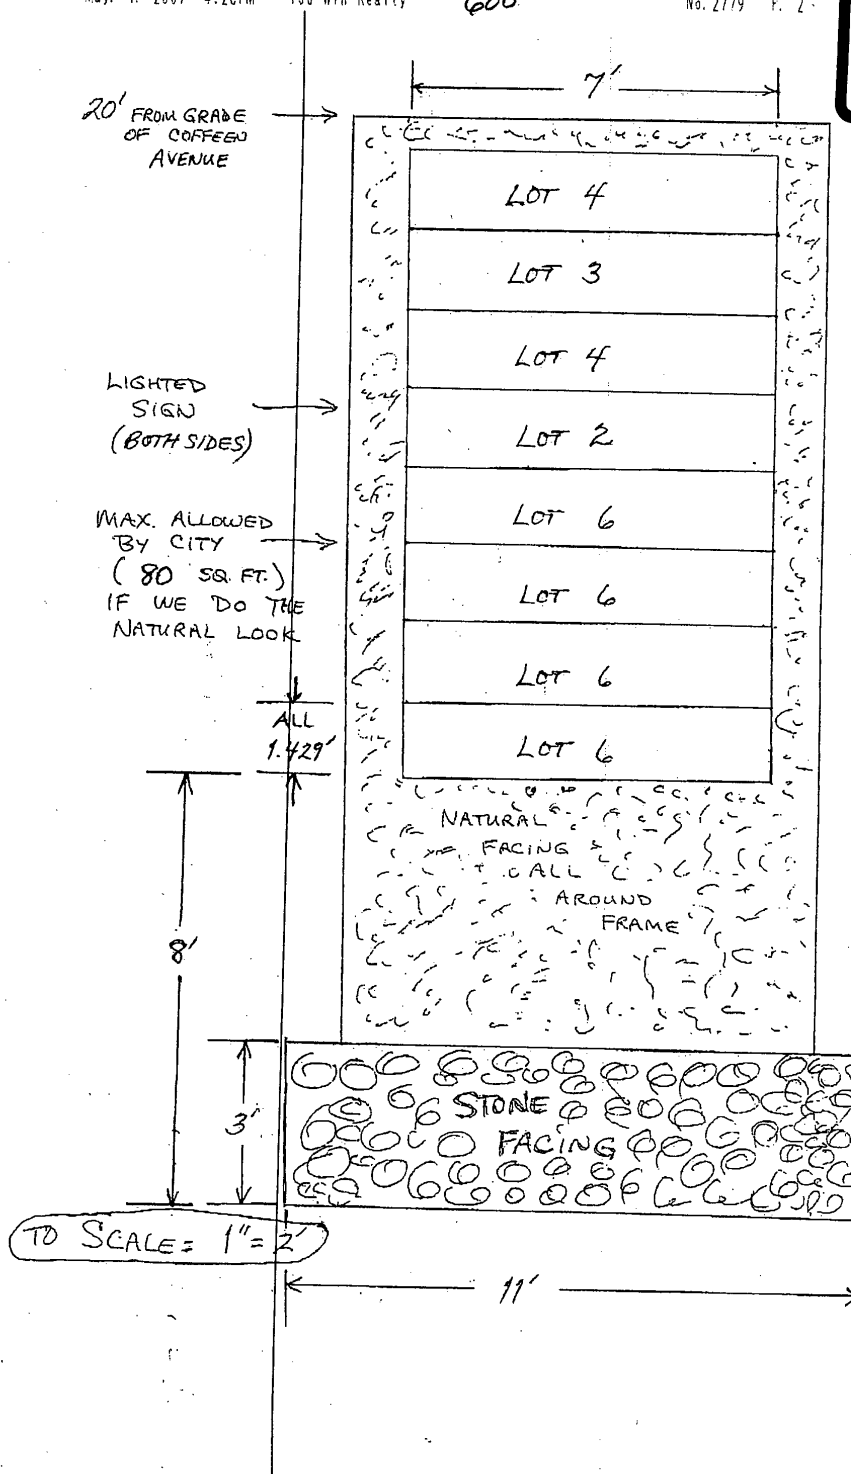 4:26PM
Realty
600
No. 2779 P. 2
7'
20' FROM GRADE
OF COFFEEN
AVENUE
LOT 4
LOT 3
LOT 4
LIGHTED
SIGN
(BOTH SIDES)
LOT 2
MAX. ALLOWED
BY CITY
(80 SQ. FT.)
IF WE DO THE
NATURAL LOOK
LOT 6
LOT 6
LOT 6
ALL
1.429'
LOT 6
NATURAL
FACING
ALL
AROUND
FRAME
8'
3'
STONE
FACING
TO SCALE = 1" = 2'
11'